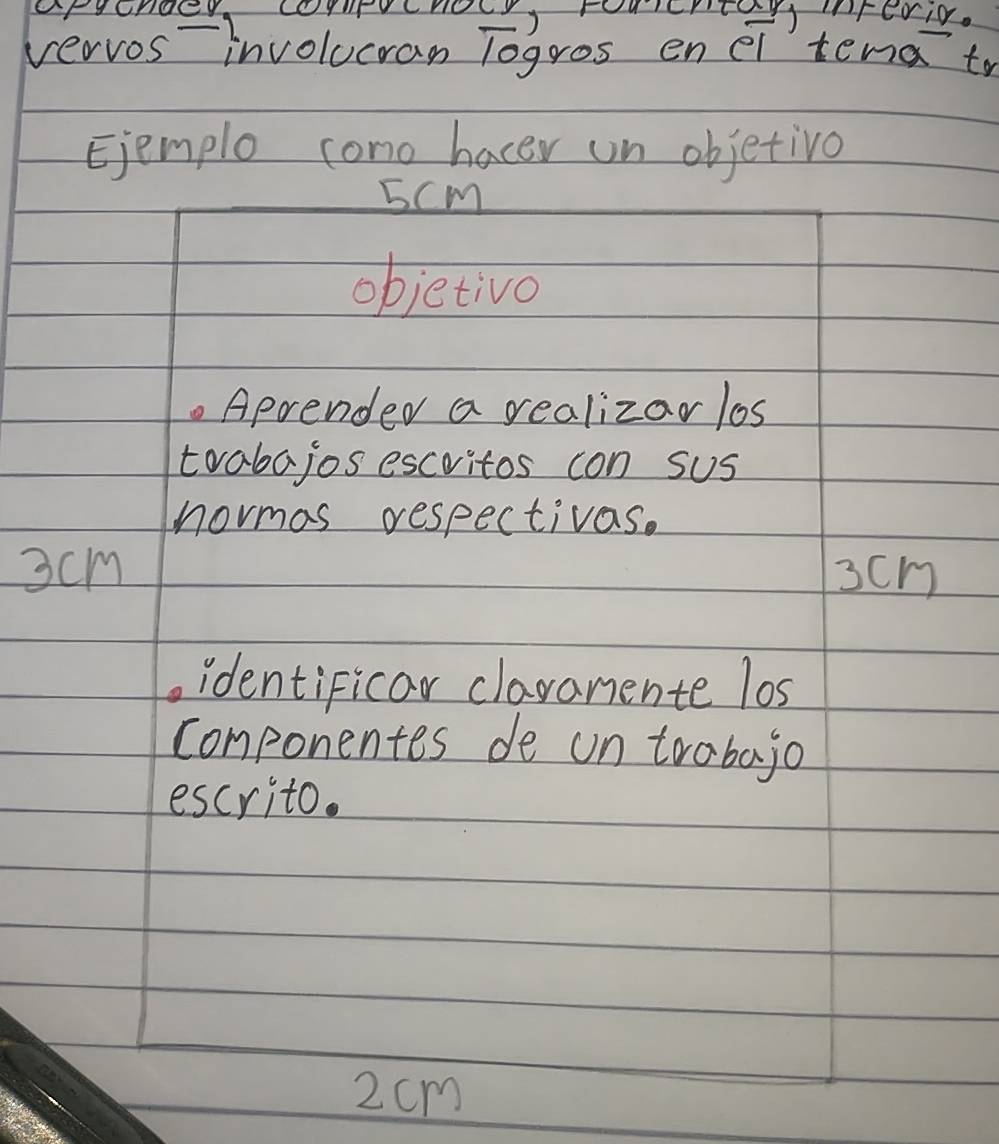 aprender, comprender, fomentar, inferir.
vervos involucran logros en el tema
Ejemplo como hacer un objetivo
5cm
objetivo
• Aprender a realizar los
trabajos escritos con sus
normas respectivas.
3cm
3cm
• identificar claramente los
componentes de un trabajo
escrito.
2cm